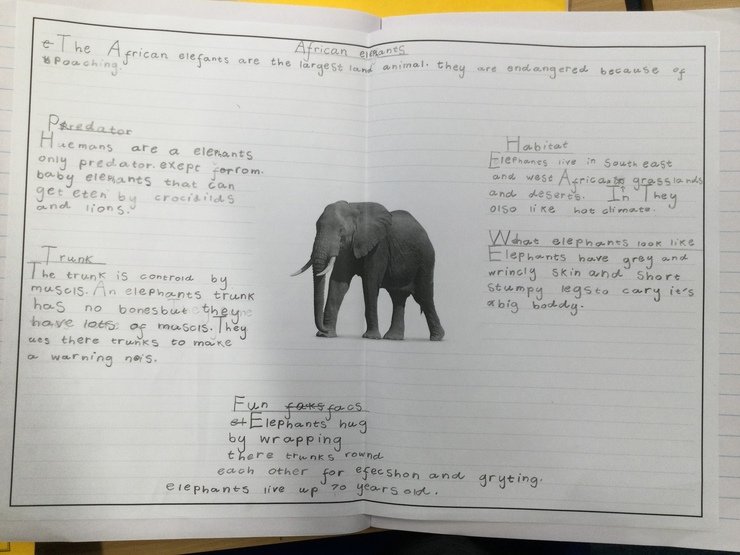 African elephants
The African elefants are the largest land animal. they are endangered because of
poaching.
Predator
Huemans are a elehants
only predator. exept from.
baby elehants that can
get eten by crocidilds
and lions.
Trunk
The trunk is controld by
muscls. An elephants trunk
has no bones but they
have lots of muscls. They
ues there trunks to make
a warning nois.
Habitat
Elephants live in South east
and west African grasslands
and deserts. In They
olso like hot climate.
What elephants look like
Elephants have grey and
wrincly skin and short
stumpy legs to cary it's
a big boddy.
Fun faks facs
Elephants hug
by wrapping
there trunks rownd
each other for efecshon and gryting.
elephants live up 70 years old.